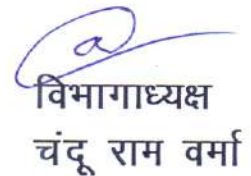 विभागाध्यक्ष
चंदू राम वर्मा